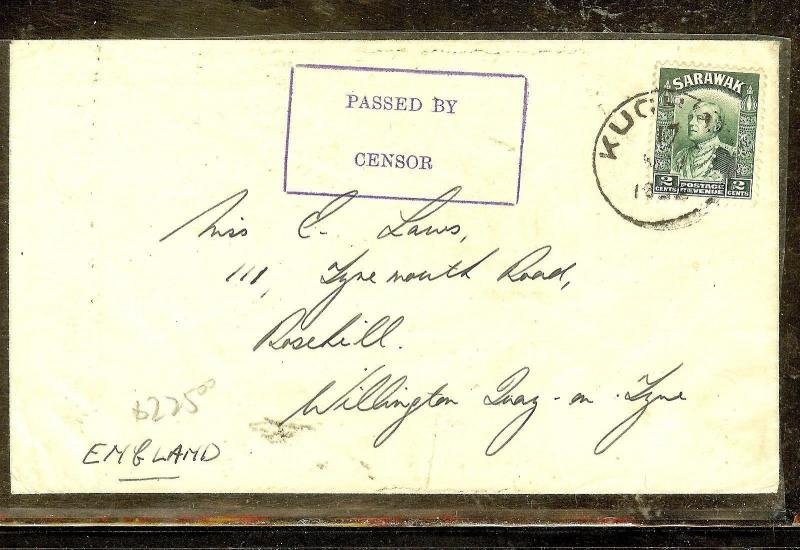 PASSED BY
CENSOR
SARAWAK
2 CENTS POSTAGE REVENUE 2 CENTS
Miss E. Laws,
111, Tynemouth Road,
Rosehill.
Willington Quay-on-Tyne
$225.00
ENGLAND